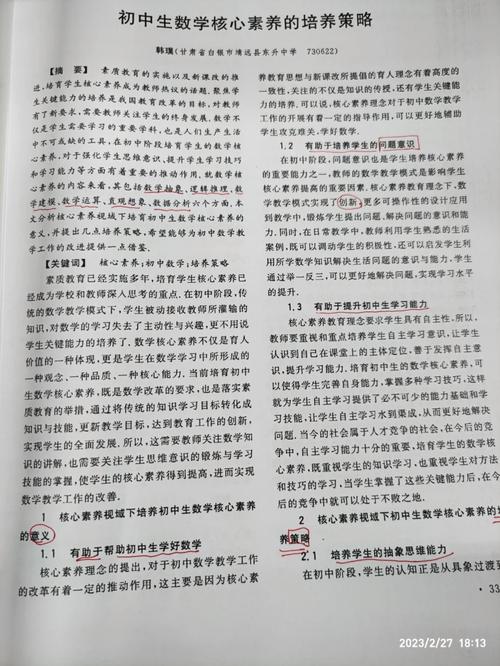 初中生数学核心素养的培养策略
韩璞(甘肃省白银市靖远县东升中学 730622)
【摘 要】 素质教育的实施以及新课改的推
进,培育学生核心素养成为教师热议的话题,聚焦学
生关键能力的培养是我国教育改革的目标,对教师
有了新要求,需要教师关注学生的终身发展,数学不
仅是学生需要学习的重要学科,也是人们生产生活
中不可或缺的工具,在初中阶段培育学生的数学核
心素养,对于强化学生思维意识、提升学生学习技巧
和学习能力等方面有着重要的推动作用,就数学核
心素养的内容来看,其包括数学抽象、逻辑推理、数
学建模、数学运算、直观想象、数据分析六个方面,本
文分析核心素养视域下培育初中生数学核心素养的
意义,并提出几点培养策略,希望能够为初中数学教
学工作的改进提供一点借鉴.
【关键词】 核心素养;初中数学;培养策略
素质教育已经实施多年,培育学生核心素养已
经成为学校和教师深入思考的重点.在初中阶段,传
统的数学教学模式下,学生被动接收教师所灌输的
知识,对数学的学习失去了主动性与兴趣,更不用说
学生关键能力的培养了.数学核心素养不仅是育人
价值的一种体现,更是学生在数学学习中所形成的
一种观念、一种品质、一种核心能力.当前培育初中
生数学核心素养,既是数学改革的要求,也是落实素
质教育的举措,通过将传统的知识学习目标转化成
知识与技能,更新教学目标,达到教育工作的创新,
实现学生的全面发展.所以,这需要教师关注数学知
识的讲解,也需要关注学生思维意识的锻炼与学习
技能的掌握,使学生的核心素养得到提高,进而实现
数学教学工作的改善.
1 核心素养视域下培养初中生数学核心素养
的意义
1.1 有助于帮助初中生学好数学
核心素养理念的提出,对于初中数学教学工作
的改革有着一定的推动作用,这主要是因为核心素
养教育思想与新课改所提倡的育人理念有着高度的
一致性,关注的不仅是知识的传授,还有学生关键能
力的培养.可以说,核心素养理念对于初中数学教学
工作的开展有着一定的指导作用,可以更好地辅助
学生攻克难关,学好数学.
1.2 有助于培养学生的问题意识
在初中阶段,问题意识也是学生培养核心素养
的重要能力之一,教师的数学教学模式是影响学生
核心素养提高的重要因素.核心素养教育理念下,数
学教学模式实现了创新,更多可操作性的设计应用
到教学中,锻炼学生提出问题、解决问题的意识和能
力.同时,在日常教学中,教师利用学生熟悉的生活
案例,既可以调动学生的积极性,还可以启发学生利
用所学数学知识解决生活问题的意识与能力,学生
通过举一反三,可以更好地解决问题,实现学习水平
的提升.
1.3 有助于提升初中生学习能力
核心素养教育理念要求学生具有自主性.所以,
教师要重视和重点培养学生自主学习意识,让学生
认识到自己在课堂上的主体定位,善于发挥自主意
识,提升学习能力.培育初中生的数学核心素养,可
以使得学生完善自身能力,掌握多种学习技巧,这样
就为学生自主学习提供了必不可少的能力基础和学
习技能,让学生自主学习水到渠成,从而更好地解决
问题.当今的社会属于人才竞争的社会,在今后的竞
争中,自主学习能力十分的重要,培育学生的数学核
心素养,既重视学生的知识学习,也重视学生对方法
和技巧的学习,当学生掌握了这些关键能力后,在今
后的竞争中就可以处于不败之地.
2 核心素养视域下培养初中生数学核心素养的培
养策略
2.1 培养学生的抽象思维能力
在初中阶段,学生的认知正是从具象过渡到
· 33
2023/2/27 18:13